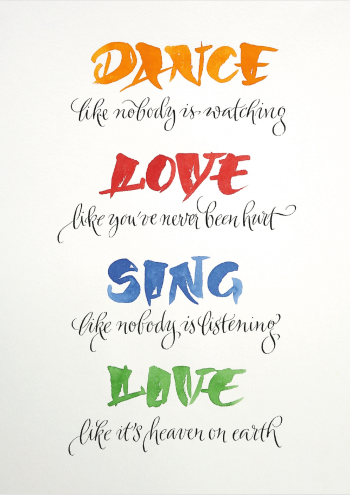 DANCE
like nobody is watching
LOVE
like you've never been hurt
SING
like nobody is listening
LOVE
like it's heaven on earth